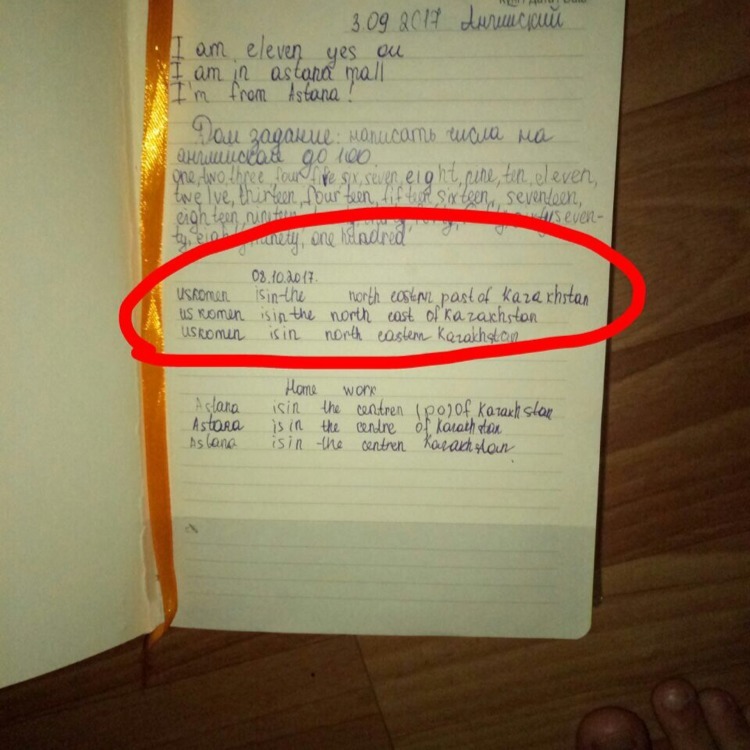 3.09 2017 Английский
I am eleven yes ou
I am in astana mall
I'm from Astana!
Дом задание: написать числа на
английском до 100.
one, two, three, four, five six, seven, eight, nine, ten, eleven,
twelve, thirteen, fourteen, fifteen sixteen, seventeen,
eighteen, nineteen seven-
ty, eighty ninety, one hundred
08.10.2017.
uskomen is in the north eastern past of Kazakhstan
uskomen is in the north east of Kazakhstan
uskomen is in north eastern Kazakhstan
Home work
Astana is in the centren (po) of Kazakhstan
Astana is in the centre of Kazakhstan
Astana is in the centren Kazakhstan.